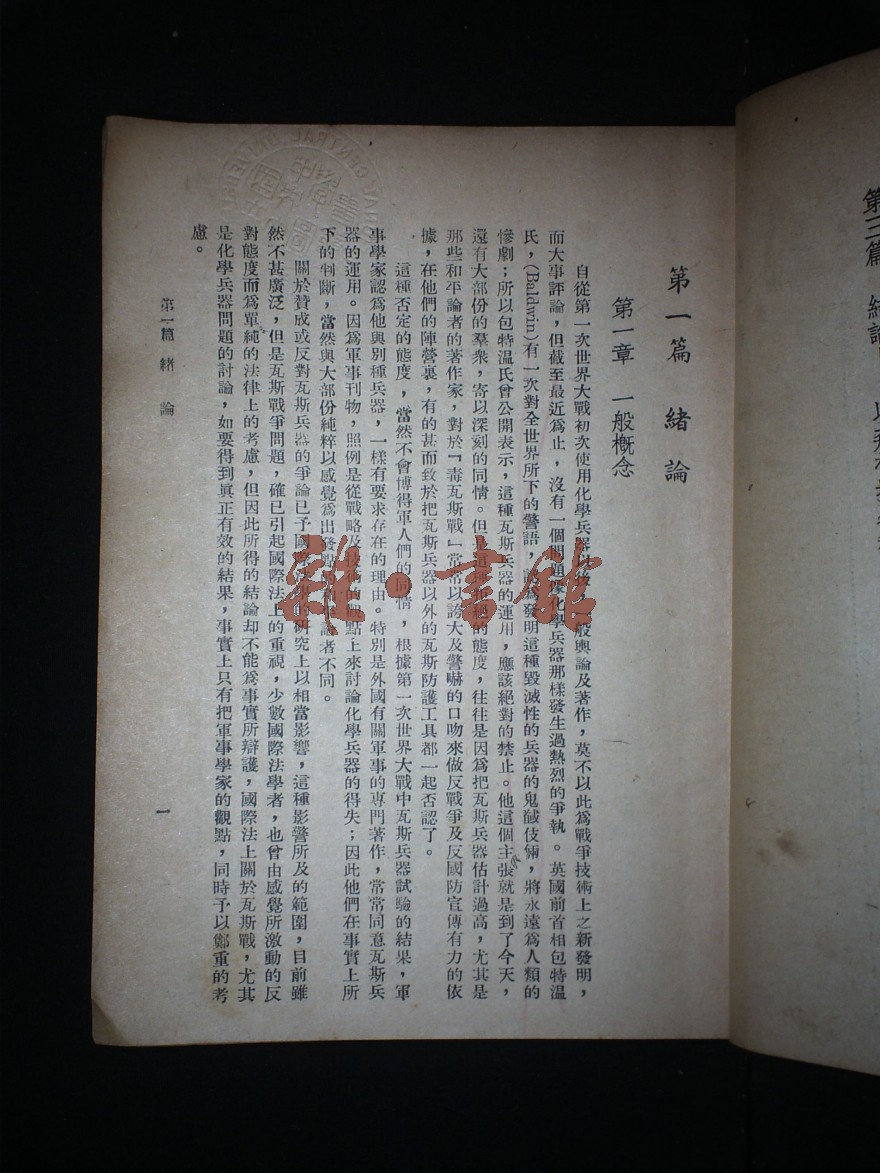 第一篇 緒論
第一章 一般概念
自從第一次世界大戰初次使用化學兵器以後，一般輿論及著作，莫不以此為戰爭技術上之新發明，
而大事評論，但截至最近為止，沒有一個問題像化學兵器那樣發生過熱烈的爭執。英國前首相包特溫
氏，(Baldwin)有一次對全世界所下的警語，認為發明這種毀滅性的兵器的鬼蜮伎倆，將永遠為人類的
慘劇；所以包特溫氏曾公開表示，這種瓦斯兵器的運用，應該絕對的禁止。他這個主張就是到了今天，
還有大部份的羣衆，寄以深刻的同情。但是這種拒絕的態度，往往是因為把瓦斯兵器估計過高，尤其是
那些和平論者的著作家，對於『毒瓦斯戰』常常以誇大及警嚇的口吻來做反戰爭及反國防宣傳有力的依
據，在他們的陣營裏，有的甚而致於把瓦斯兵器以外的瓦斯防護工具都一起否認了。
這種否定的態度，當然不會博得軍人們的同情，根據第一次世界大戰中瓦斯兵器試驗的結果，軍
事學家認為他與別種兵器，一樣有要求存在的理由。特別是外國有關軍事的專門著作，常常同意瓦斯兵
器的運用。因為軍事刊物，照例是從戰略及技術的觀點上來討論化學兵器的得失；因此他們在事實上所
下的判斷，當然與大部份純粹以感覺為出發點的和平論者不同。
關於贊成或反對瓦斯兵器的爭論已予國際法學的研究上以相當影響，這種影響所及的範圍，目前雖
然不甚廣泛，但是瓦斯戰爭問題，確已引起國際法上的重視，少數國際法學者，也曾由感覺所激動的反
對態度而為單純的法律上的考慮，但因此所得的結論却不能為事實所辯護，國際法上關於瓦斯戰，尤其
是化學兵器問題的討論，如要得到眞正有效的結果，事實上只有把軍事學家的觀點，同時予以鄭重的考
慮。
第一篇 緒論
一
雅·書館